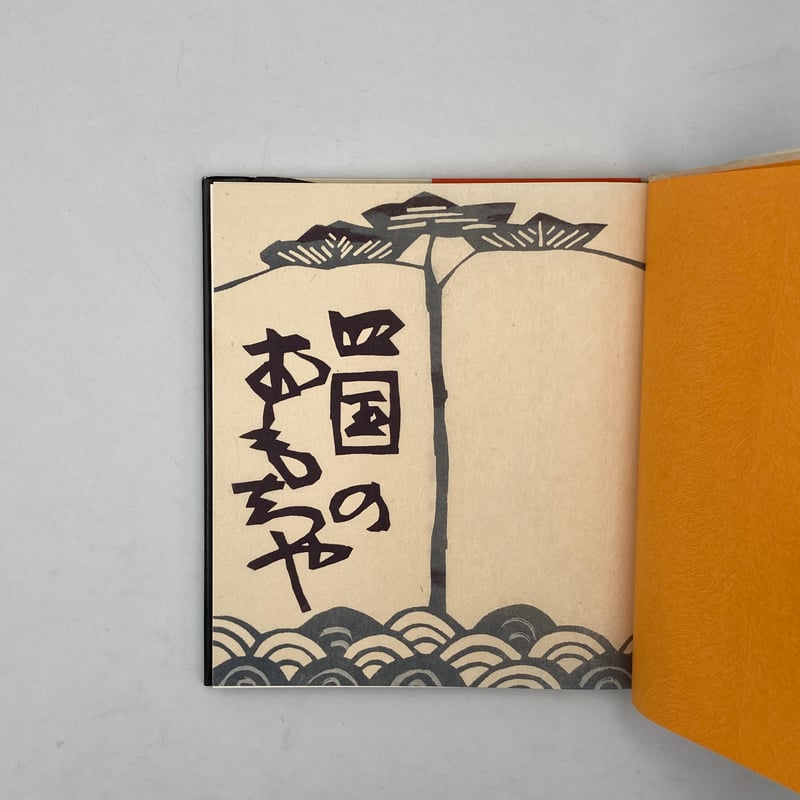 四国の
おもちや